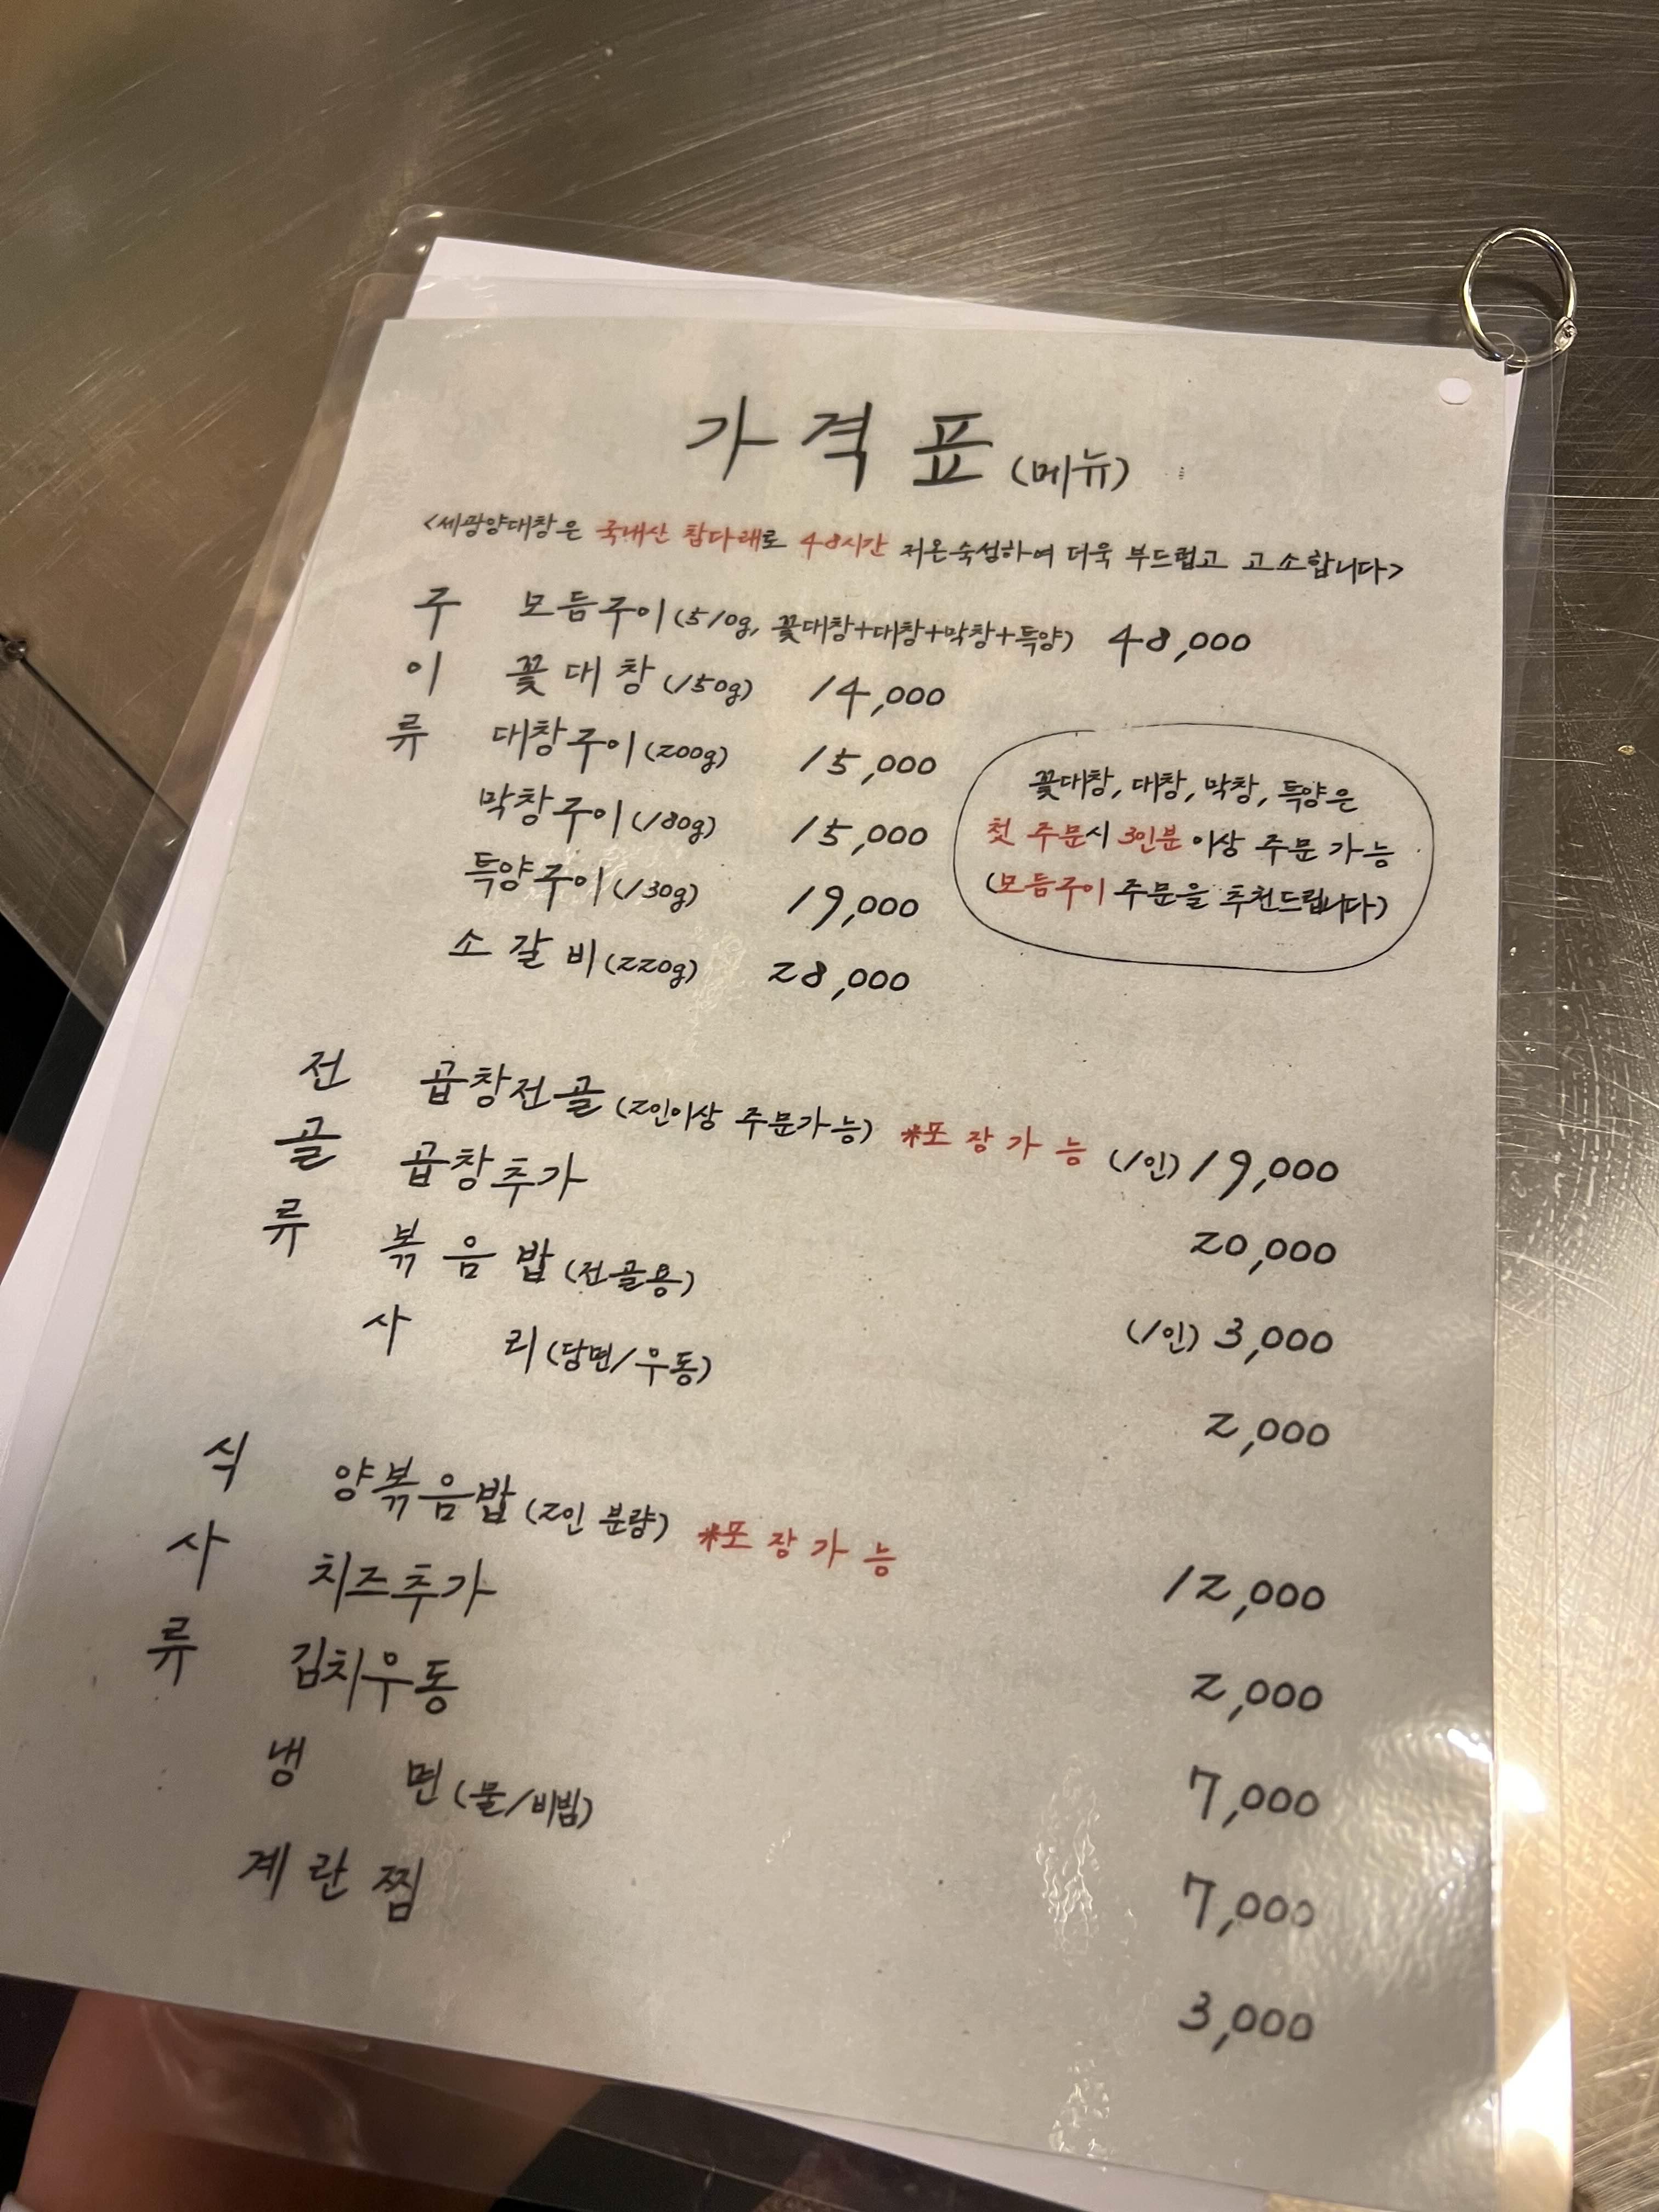 가격표 (메뉴)
<세광양대창은 국내산 참다래로 48시간 저온숙성하여 더욱 부드럽고 고소합니다>
구이류
모듬구이 (510g, 꽃대창+대창+막창+특양) 48,000
꽃대창 (150g) 14,000
대창구이 (200g) 15,000
막창구이 (180g) 15,000
특양구이 (130g) 19,000
소갈비 (220g) 28,000
꽃대창, 대창, 막창, 특양은
첫 주문시 3인분 이상 주문 가능
(모듬구이 주문을 추천드립니다)
전골류
곱창전골 (2인이상 주문가능) *포장가능 (1인) 19,000
곱창추가 20,000
볶음밥 (전골용) (1인) 3,000
사리 (당면/우동) 2,000
식사류
양볶음밥 (2인 분량) *포장가능 12,000
치즈추가 2,000
김치우동 7,000
냉면 (물/비빔) 7,000
계란찜 3,000